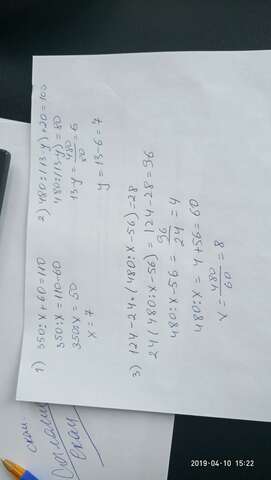 1) 350:x+60=110
350:x=110-60
350:x=50
x=7
2) 480:(13-y)+20=100
480:(13-y)=80
13-y=480/80=6
y=13-6=7
3) 124-24·(480:x-56)=28
24(480:x-56)=124-28=96
480:x-56=96/24=4
480:x=4+56=60
x=480/60=8
скан
2019-04-10 15:22